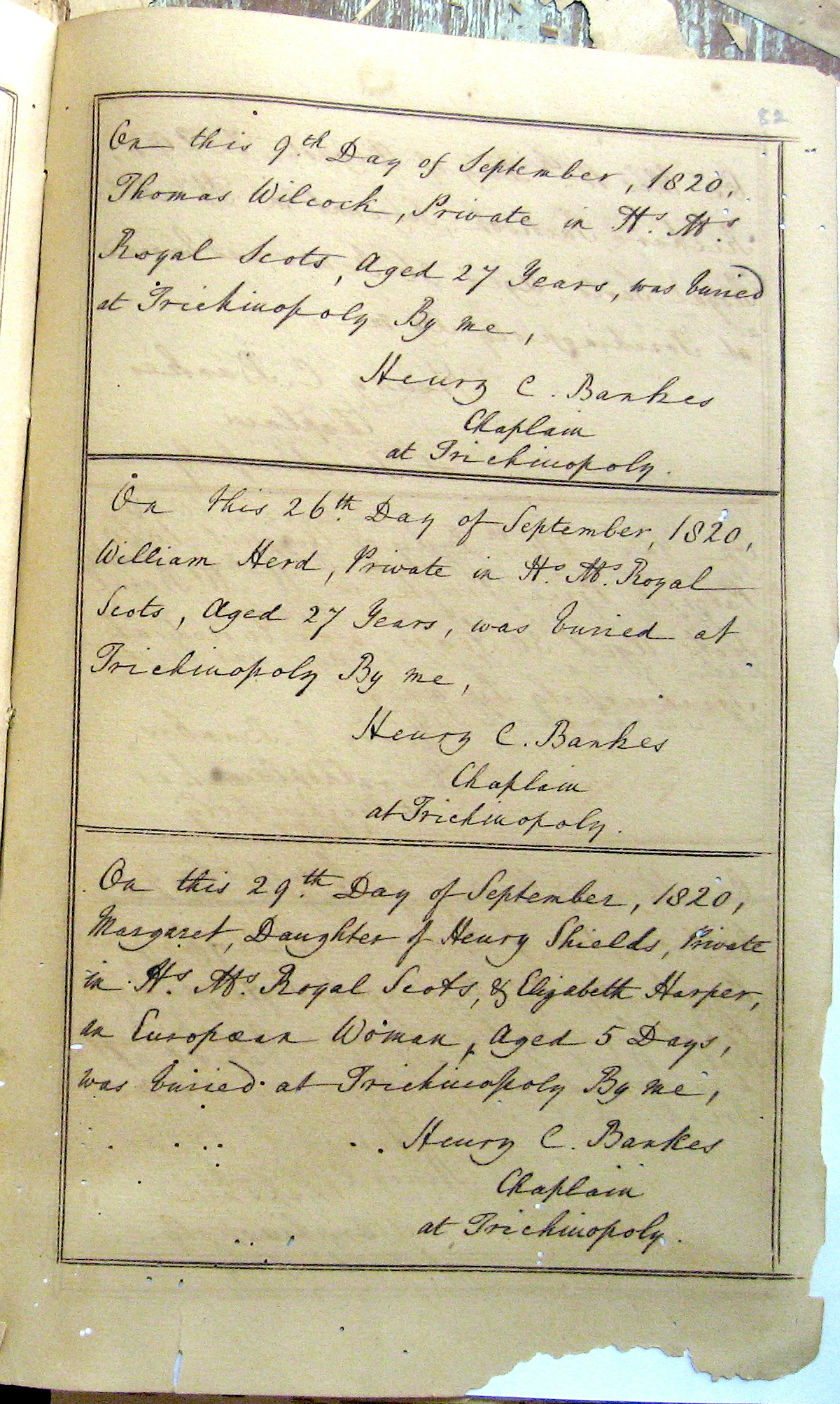 82
On this 9th Day of September, 1820,
Thomas Wilcock, Private in H.s M.s
Royal Scots, Aged 27 Years, was buried
at Trichinopoly By me,
Henry C. Bankes
Chaplain
at Trichinopoly.
On this 26th Day of September, 1820,
William Herd, Private in H.s M.s Royal
Scots, Aged 27 Years, was buried at
Trichinopoly By me,
Henry C. Bankes
Chaplain
at Trichinopoly.
On this 29th Day of September, 1820,
Margaret, Daughter of Henry Shields, Private
in H.s M.s Royal Scots, & Elizabeth Harper,
an European Woman, Aged 5 Days,
was buried at Trichinopoly By me,
Henry C. Bankes
Chaplain
at Trichinopoly.